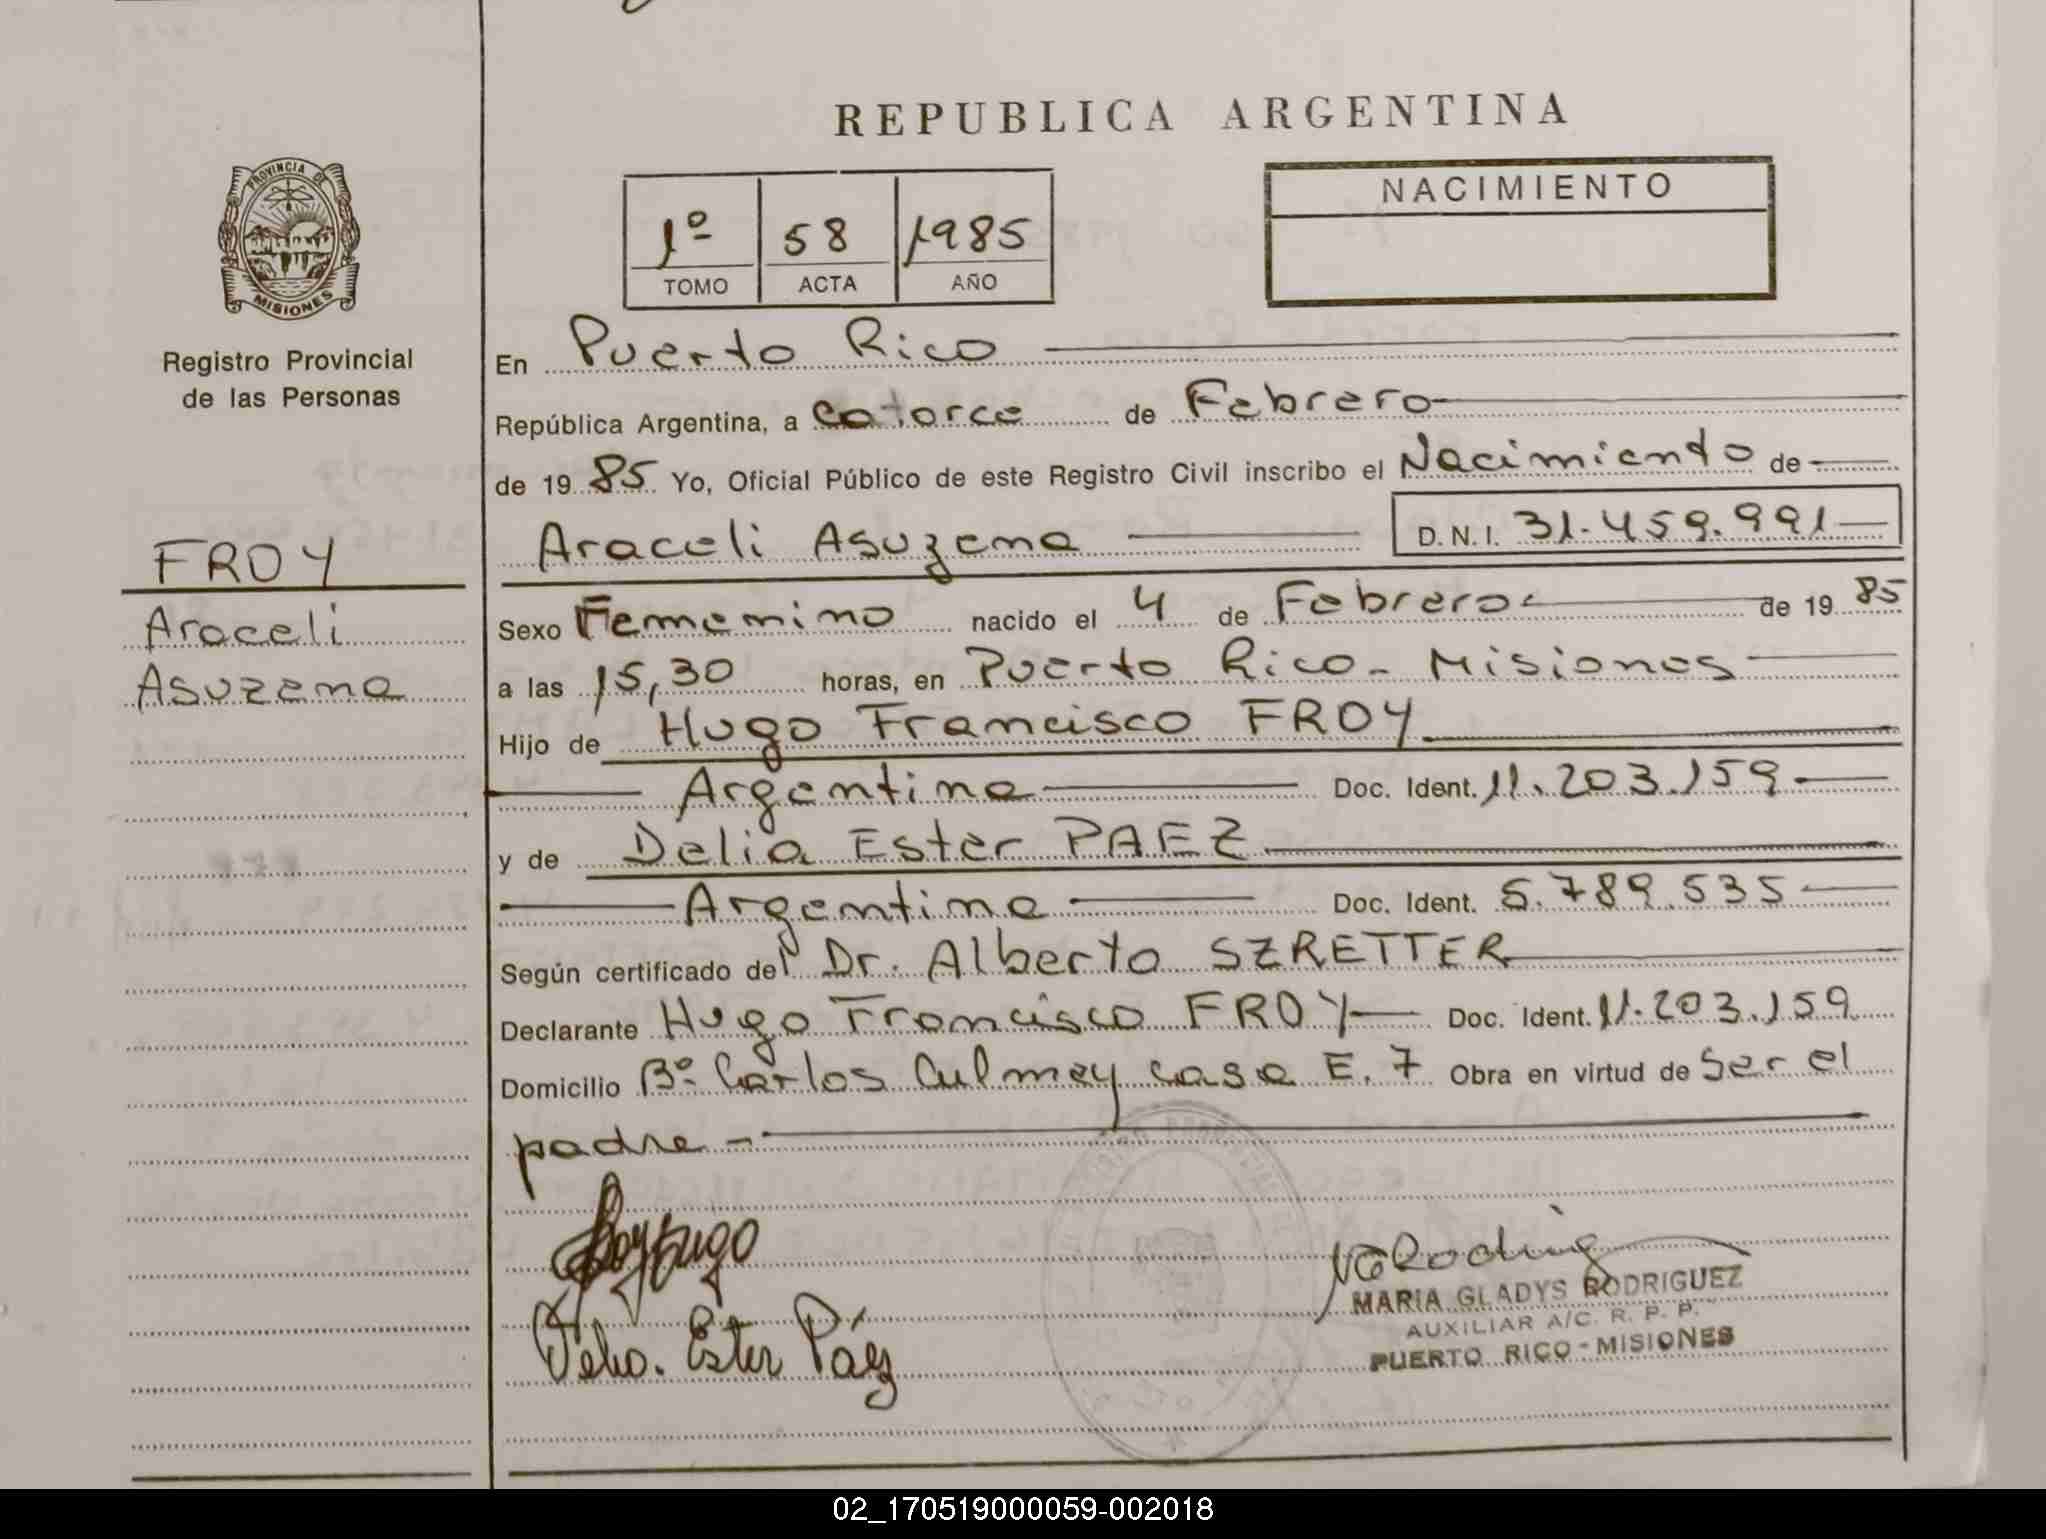 REPUBLICA ARGENTINA
PROVINCIA DE
MISIONES
Registro Provincial
de las Personas
FROY
Araceli
Asuzena
1º 58 1985
TOMO ACTA AÑO
NACIMIENTO
En Puerto Rico
República Argentina, a catorce de Febrero
de 19 85 Yo, Oficial Público de este Registro Civil inscribo el Nacimiento de
Araceli Asuzena D.N.I. 31.459.991
Sexo Femenino nacido el 4 de Febrero de 19 85
a las 15,30 horas, en Puerto Rico - Misiones
Hijo de Hugo Francisco FROY
Argentina Doc. Ident. 11.203.159
y de Delia Ester PAEZ
Argentina Doc. Ident. 5.789.535
Según certificado del Dr. Alberto SZRETTER
Declarante Hugo Francisco FROY Doc. Ident. 11.203.159
Domicilio Bº Carlos Culmey casa E. 7 Obra en virtud de Ser el
padre -
Delia Ester Páez
MARIA GLADYS RODRIGUEZ
AUXILIAR A/C. R. P. P.
PUERTO RICO - MISIONES
02_170519000059-002018